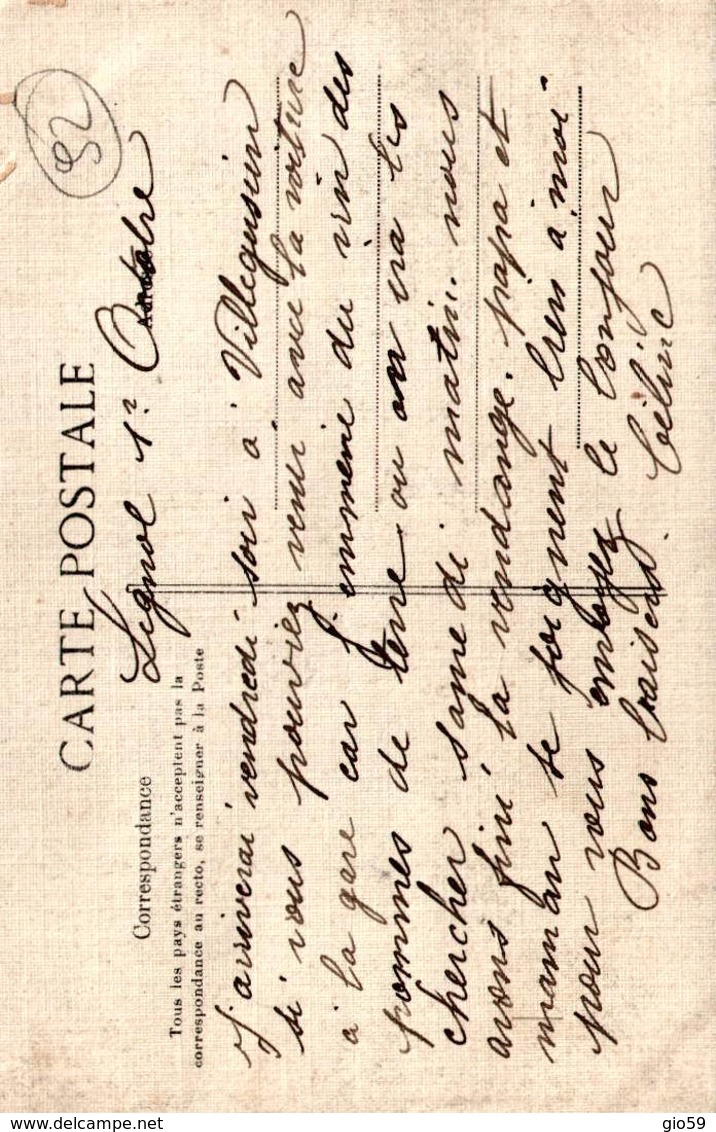 CARTE POSTALE
92
Correspondance
Tous les pays étrangers n'acceptent pas la
correspondance au recto, se renseigner à la Poste
Lignol 1er Octobre
J'arriverai vendredi soir à Villegusien
si vous pouviez venir avec la voiture
à la gare car j'emmène du vin des
pommes de terre ou on ira les
chercher samedi matin. nous
avons fini la vendange. papa et
maman se joignent bien à moi
pour vous envoyez le bonjour
Bons baisers. Céline
delcampe.net
gio59